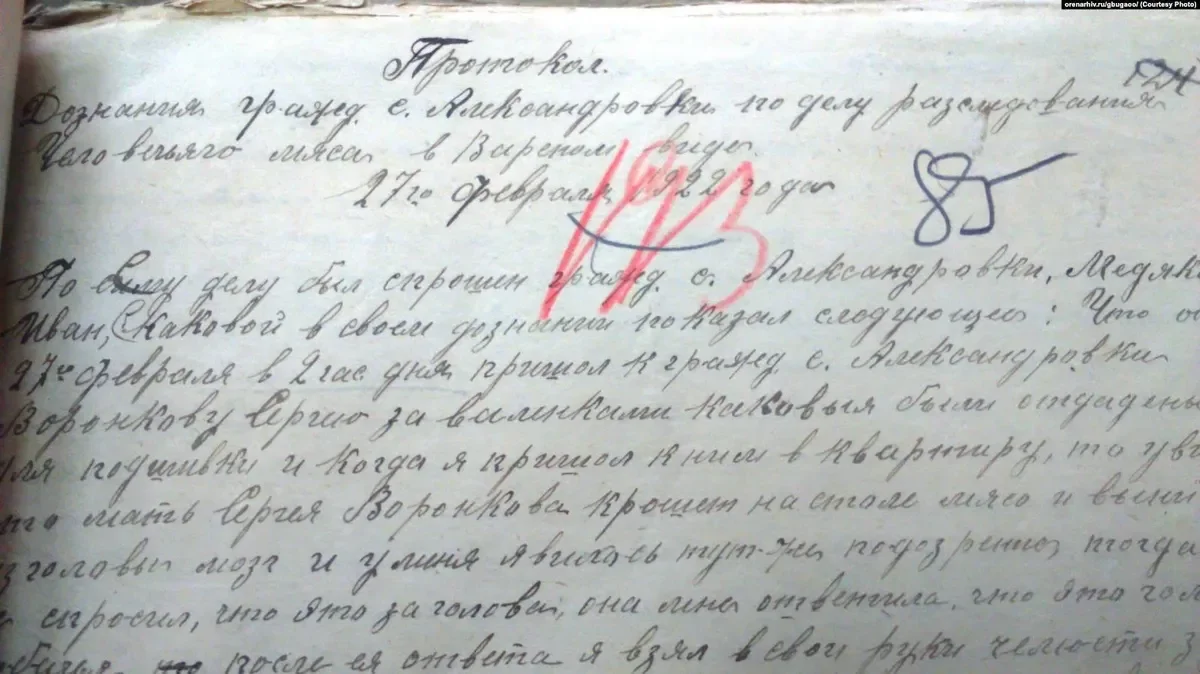 orenarhiv.ru/gbugaoo/ (Courtesy Photo)
Протокол.
124
Дознания гражд. с. Александровки по делу разследования
Человечьяго мяса в Вареном виде.
27го февраля 1922 года
85
193
По сему делу был спрошен гражд. с. Александровки, Медяк
Иван, Каковой в своем дознании показал следующеи: Что
27го февраля в 2 час дня пришол к гражд. с. Александровки
Воронкову Сергию за валенками каковыя были отдадены
для подшивки и когда я пришол к ним в квартиру, то уви
что мать Сергея Воронкова крошет на столе мясо и выни
з головы мозг и у миня явилось тут-же подозрение тогда
спросил, что это за голова, она мне ответила, что это гол
после ея ответа я взял в свои руки челюсти